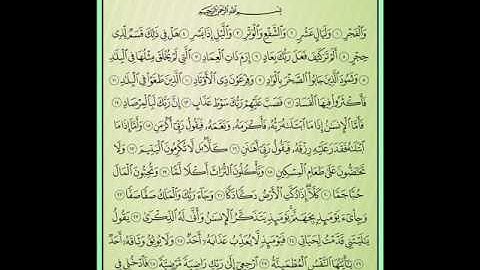 بِسْمِ اللَّهِ الرَّحْمَٰنِ الرَّحِيمِ
وَالْفَجْرِ ١ وَلَيَالٍ عَشْرٍ ٢ وَالشَّفْعِ وَالْوَتْرِ ٣ وَاللَّيْلِ إِذَا يَسْرِ ٤ هَلْ فِي ذَٰلِكَ قَسَمٌ لِذِي
حِجْرٍ ٥ أَلَمْ تَرَ كَيْفَ فَعَلَ رَبُّكَ بِعَادٍ ٦ إِرَمَ ذَاتِ الْعِمَادِ ٧ الَّتِي لَمْ يُخْلَقْ مِثْلُهَا فِي الْبِلَادِ
٨ وَثَمُودَ الَّذِينَ جَابُوا الصَّخْرَ بِالْوَادِ ٩ وَفِرْعَوْنَ ذِي الْأَوْتَادِ ١٠ الَّذِينَ طَغَوْا فِي الْبِلَادِ ١١
فَأَكْثَرُوا فِيهَا الْفَسَادَ ١٢ فَصَبَّ عَلَيْهِمْ رَبُّكَ سَوْطَ عَذَابٍ ١٣ إِنَّ رَبَّكَ لَبِالْمِرْصَادِ ١٤
فَأَمَّا الْإِنْسَانُ إِذَا مَا ابْتَلَاهُ رَبُّهُ فَأَكْرَمَهُ وَنَعَّمَهُ فَيَقُولُ رَبِّي أَكْرَمَنِ ١٥ وَأَمَّا إِذَا مَا
ابْتَلَاهُ فَقَدَرَ عَلَيْهِ رِزْقَهُ فَيَقُولُ رَبِّي أَهَانَنِ ١٦ كَلَّا بَلْ لَا تُكْرِمُونَ الْيَتِيمَ ١٧ وَلَا
تَحَاضُّونَ عَلَىٰ طَعَامِ الْمِسْكِينِ ١٨ وَتَأْكُلُونَ التُّرَاثَ أَكْلًا لَمًّا ١٩ وَتُحِبُّونَ الْمَالَ
حُبًّا جَمًّا ٢٠ كَلَّا إِذَا دُكَّتِ الْأَرْضُ دَكًّا دَكًّا ٢١ وَجَاءَ رَبُّكَ وَالْمَلَكُ صَفًّا صَفًّا ٢٢
وَجِيءَ يَوْمَئِذٍ بِجَهَنَّمَ يَوْمَئِذٍ يَتَذَكَّرُ الْإِنْسَانُ وَأَنَّىٰ لَهُ الذِّكْرَىٰ ٢٣ يَقُولُ
يَا لَيْتَنِي قَدَّمْتُ لِحَيَاتِي ٢٤ فَيَوْمَئِذٍ لَا يُعَذِّبُ عَذَابَهُ أَحَدٌ ٢٥ وَلَا يُوثِقُ وَثَاقَهُ أَحَدٌ
٢٦ يَا أَيَّتُهَا النَّفْسُ الْمُطْمَئِنَّةُ ٢٧ ارْجِعِي إِلَىٰ رَبِّكِ رَاضِيَةً مَرْضِيَّةً ٢٨ فَادْخُلِي فِي